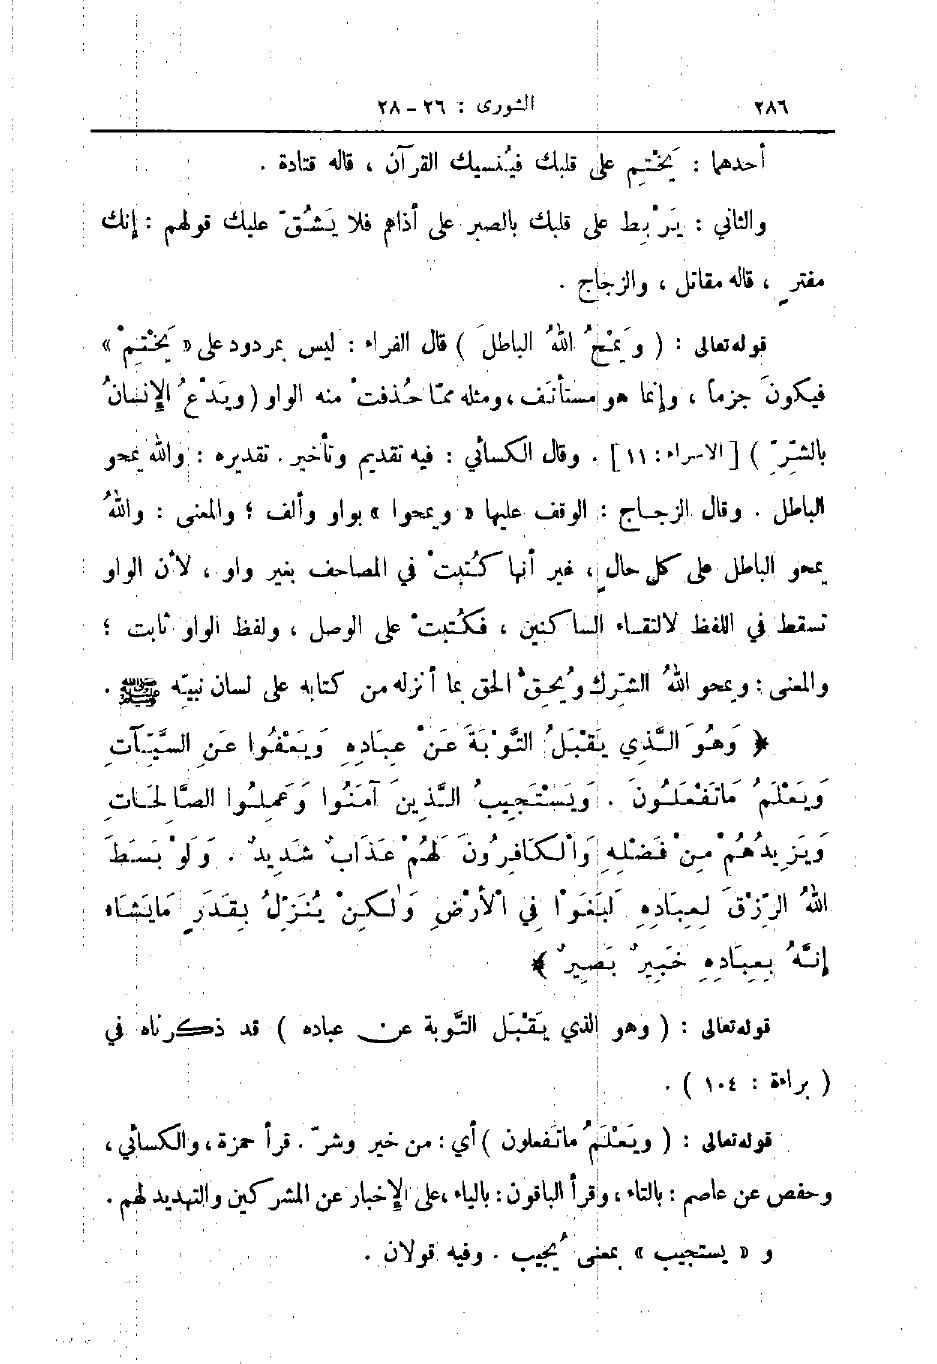 ٢٨٦ الشورى : ٢٦ - ٢٨
أحدهما : يَخْتِم على قلبك فيُنسيك القرآن ، قاله قتادة .
والثاني : يَرْبِط على قلبك بالصبر على أذاهم فلا يَشُقّ عليك قولهم : إنك
مفترٍ ، قاله مقاتل ، والزجاج .
قوله تعالى : ( ويَمْحُ اللهُ الباطلَ ) قال الفراء : ليس بمردود على « يَخْتِمْ »
فيكونَ جزماً ، وإنما هو مستأنَف ، ومثله ممّا حُذفتْ منه الواو ( ويَدْعُ الإِنسانُ
بالشَّرِّ ) [ الاسراء : ١١ ] . وقال الكسائي : فيه تقديم وتأخير . تقديره : والله يمحو
الباطل . وقال الزجــاج : الوقف عليها « ويمحوا » بواو وألف ؛ والمعنى : واللهُ
يمحو الباطل على كل حالٍ ، غير أنها كُتبتْ في المصاحف بغير واو ، لأن الواو
تسقط في اللفظ لالتقـاء الساكنين ، فكُتبتْ على الوصل ، ولفظ الواو ثابت ؛
والمعنى : ويمحو اللهُ الشِّرك ويُحِقُّ الحق بما أنزله من كتابه على لسان نبيّه ﷺ .
﴿ وَهُوَ الَّذِي يَقْبَلُ التَّوْبَةَ عَنْ عِبَادِهِ وَيَعْفُوا عَنِ السَّيِّآتِ
وَيَعْلَمُ مَا تَفْعَلُونَ . وَيَسْتَجِيبُ الَّذِينَ آمَنُوا وَعَمِلُوا الصَّالِحَاتِ
وَيَزِيدُهُمْ مِنْ فَضْلِهِ وَالْكَافِرُونَ لَهُمْ عَذَابٌ شَدِيدٌ . وَلَوْ بَسَطَ
اللهُ الرِّزْقَ لِعِبَادِهِ لَبَغَوْا فِي الْأَرْضِ وَلٰكِنْ يُنَزِّلُ بِقَدَرٍ مَا يَشَاءُ
إِنَّهُ بِعِبَادِهِ خَبِيرٌ بَصِيرٌ ﴾
قوله تعالى : ( وهو الذي يَقْبَل التَّوبة عن عباده ) قد ذكرناه في
( براءة : ١٠٤ ) .
قوله تعالى : ( ويَعْلَمُ ما تَفعلون ) أي : من خير وشرّ . قرأ حمزة ، والكسائي ،
وحفص عن عاصم : بالتاء ، وقرأ الباقون : بالياء ، على الإِخبار عن المشركين والتهديد لهم .
و « يستجيب » بمعنى يُجيب . وفيه قولان .